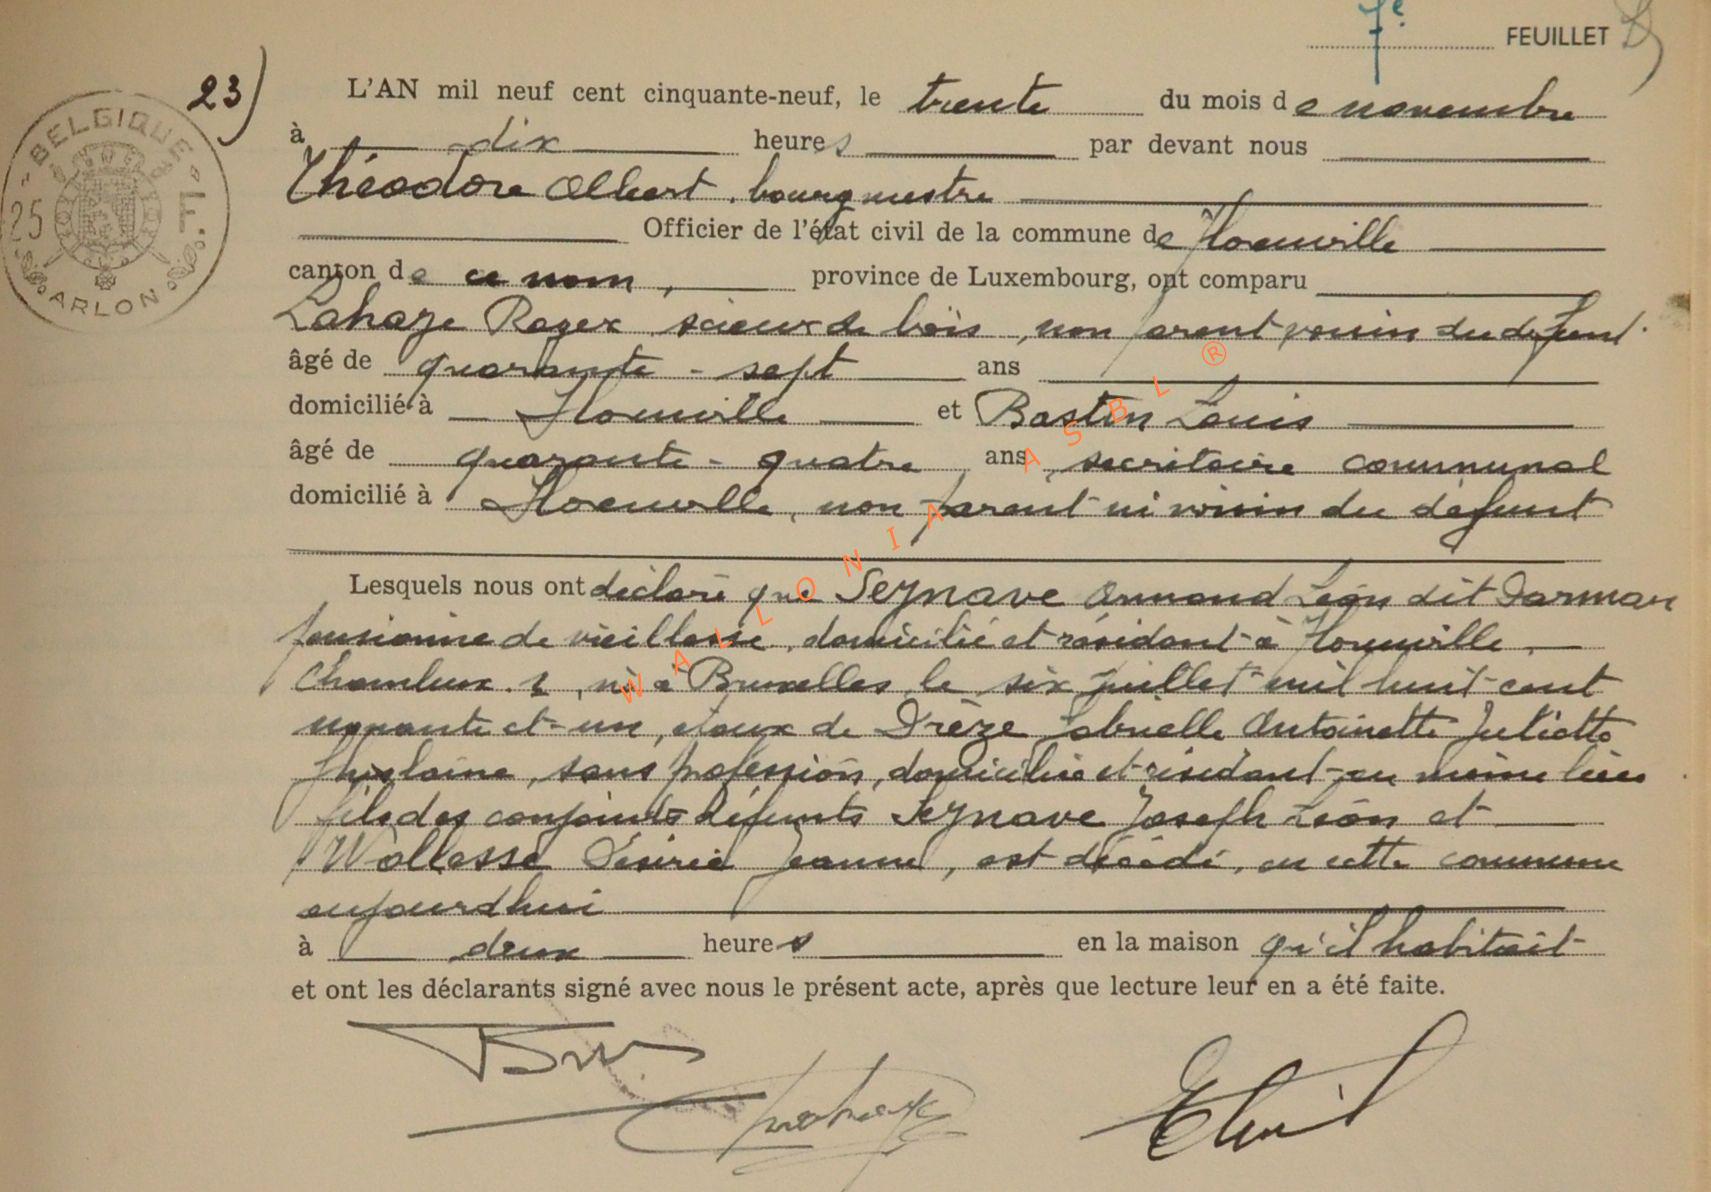 7e FEUILLET
23)
BELGIQUE
25 F.
ARLON
L'AN mil neuf cent cinquante-neuf, le trente du mois de novembre
à dix heures par devant nous
Théodore Albert, bourgmestre
Officier de l'état civil de la commune de Florenville
canton de ce nom, province de Luxembourg, ont comparu
Lahaye Roger, scieur de bois, non parent voisin du defunt
âgé de quarante-sept ans
domicilié à Florenville et Bastin Louis
âgé de quarante-quatre ans, secrétaire communal
domicilié à Florenville, non parent ni voisin du défunt
Lesquels nous ont déclaré que Seynave Armand Léon dit Darman
pensionné de vieillesse, domicilié et résidant à Florenville,
Chameleux 2, né à Bruxelles le six juillet mil huit cent
nonante et un, époux de Drèze Gabrielle Antoinette Juliette
Ghislaine, sans profession, domiciliée et résidant au même lieu
fils des conjoints défunts Seynave Joseph Léon et
Wallesse Désirée Jeanne, est décédé, en cette commune
aujourd'hui
à deux heures en la maison qu'il habitait
et ont les déclarants signé avec nous le présent acte, après que lecture leur en a été faite.
WALLONIA ASBL ®